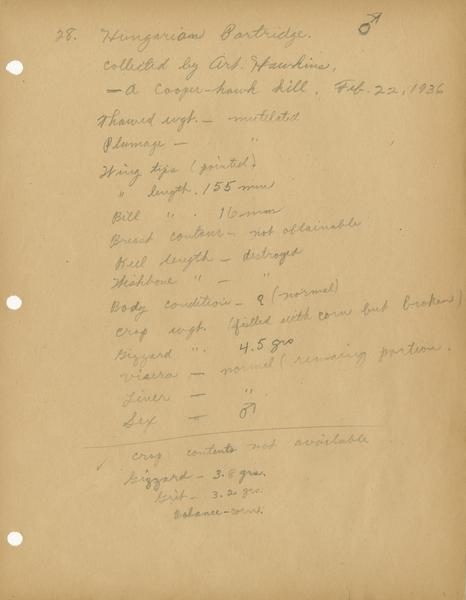 28. Hungarian Partridge. ♂
collected by Art. Hawkins,
— A Cooper-hawk kill. Feb. 22, 1936
Thawed wgt. — mutelated
Plumage — "
Wing tips (pointed)
" length. 155 mm
Bill " . 16 mm
Breast contour — not obtainable
Keel length — destroyed
Wishbone " — "
Body condition — (normal)
Crop wgt. (filled with corn but broken)
Gizzard ". 4.5 grs
Visera — normal (remaining portion.
Liver — "
Sex — ♂
✓ Crop contents not available
Gizzard — 3.8 grs.
Grit — 3.2 grs.
Balance — corn.